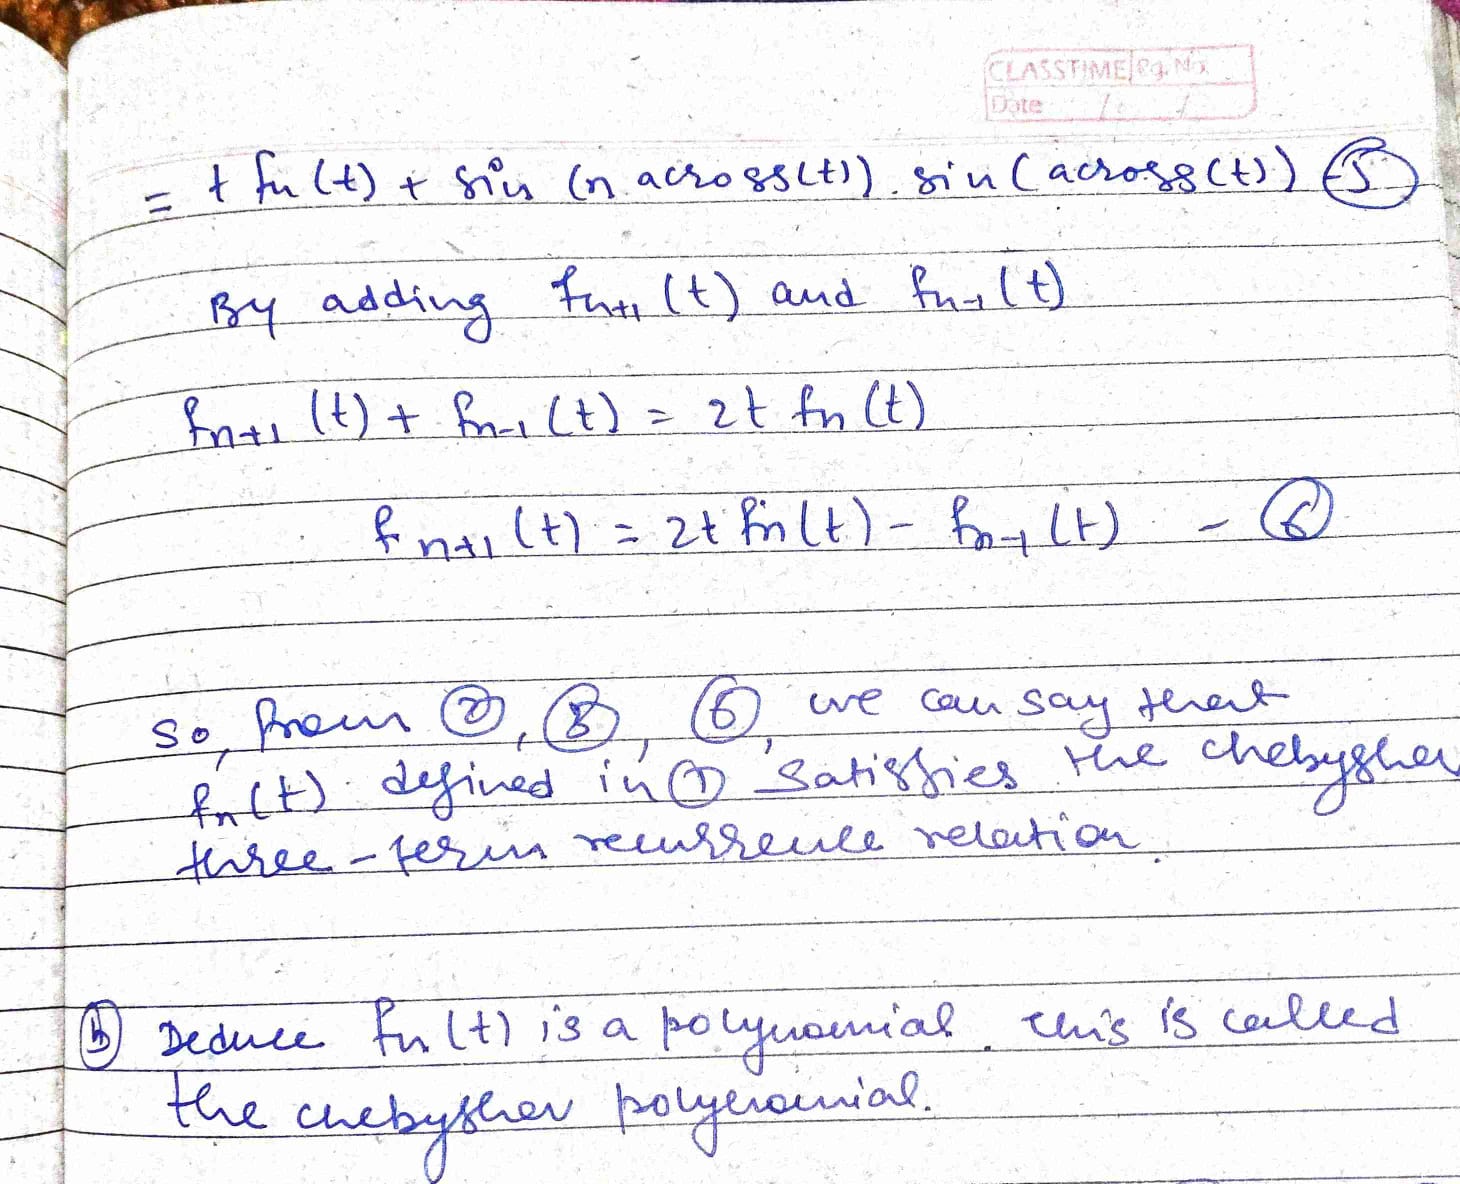 CLASSTIME Pg. No.
Date / /
= t fn (t) + sin (n across(t)). sin (across(t)) (5)
By adding fn+1 (t) and fn-1 (t)
fn+1 (t) + fn-1 (t) = 2t fn (t)
fn+1 (t) = 2t fn (t) - fn-1 (t) - (6)
so, from (2), (3), (6), we can say that
fn (t) defined in (1) satisfies the chebyshev
three - term recurrence relation.
(b) Deduce fn (t) is a polynomial. this is called
the chebyshev polynomial.